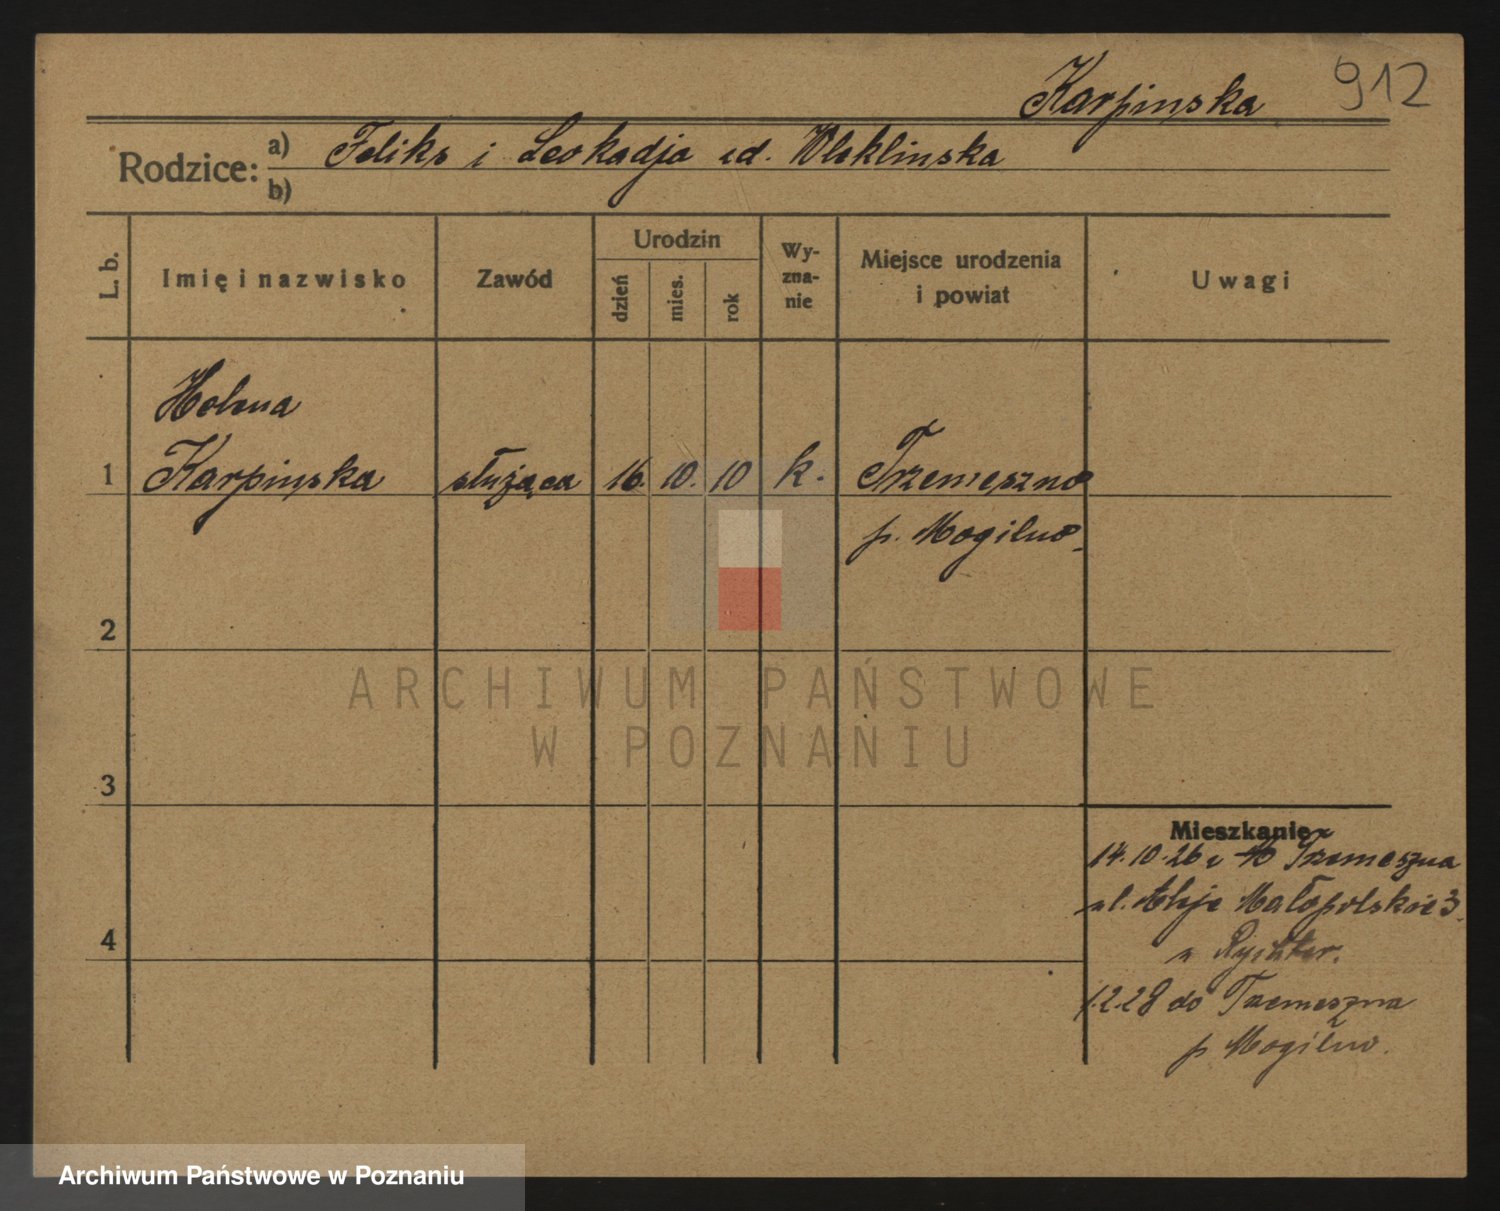 Karpinska 912
Rodzice: a) Feliks i Leokadja
b)
L. b.
Imię i nazwisko
Zawód
Urodzin
dzień
mies.
rok
Wy-
zna-
nie
Miejsce urodzenia
i powiat
Uwagi
Helena
1 Karpinska służąca 16. 10. 10 k. Trzemeszno
p. Mogilno.
2
ARCHIWUM PAŃSTWOWE
W POZNANIU
3
Mieszkanie
14.10.26 z Trzemeszna
ul. Małopolskie 3.
4
1.2.28 do Trzemeszna
p. Mogilno.
Archiwum Państwowe w Poznaniu